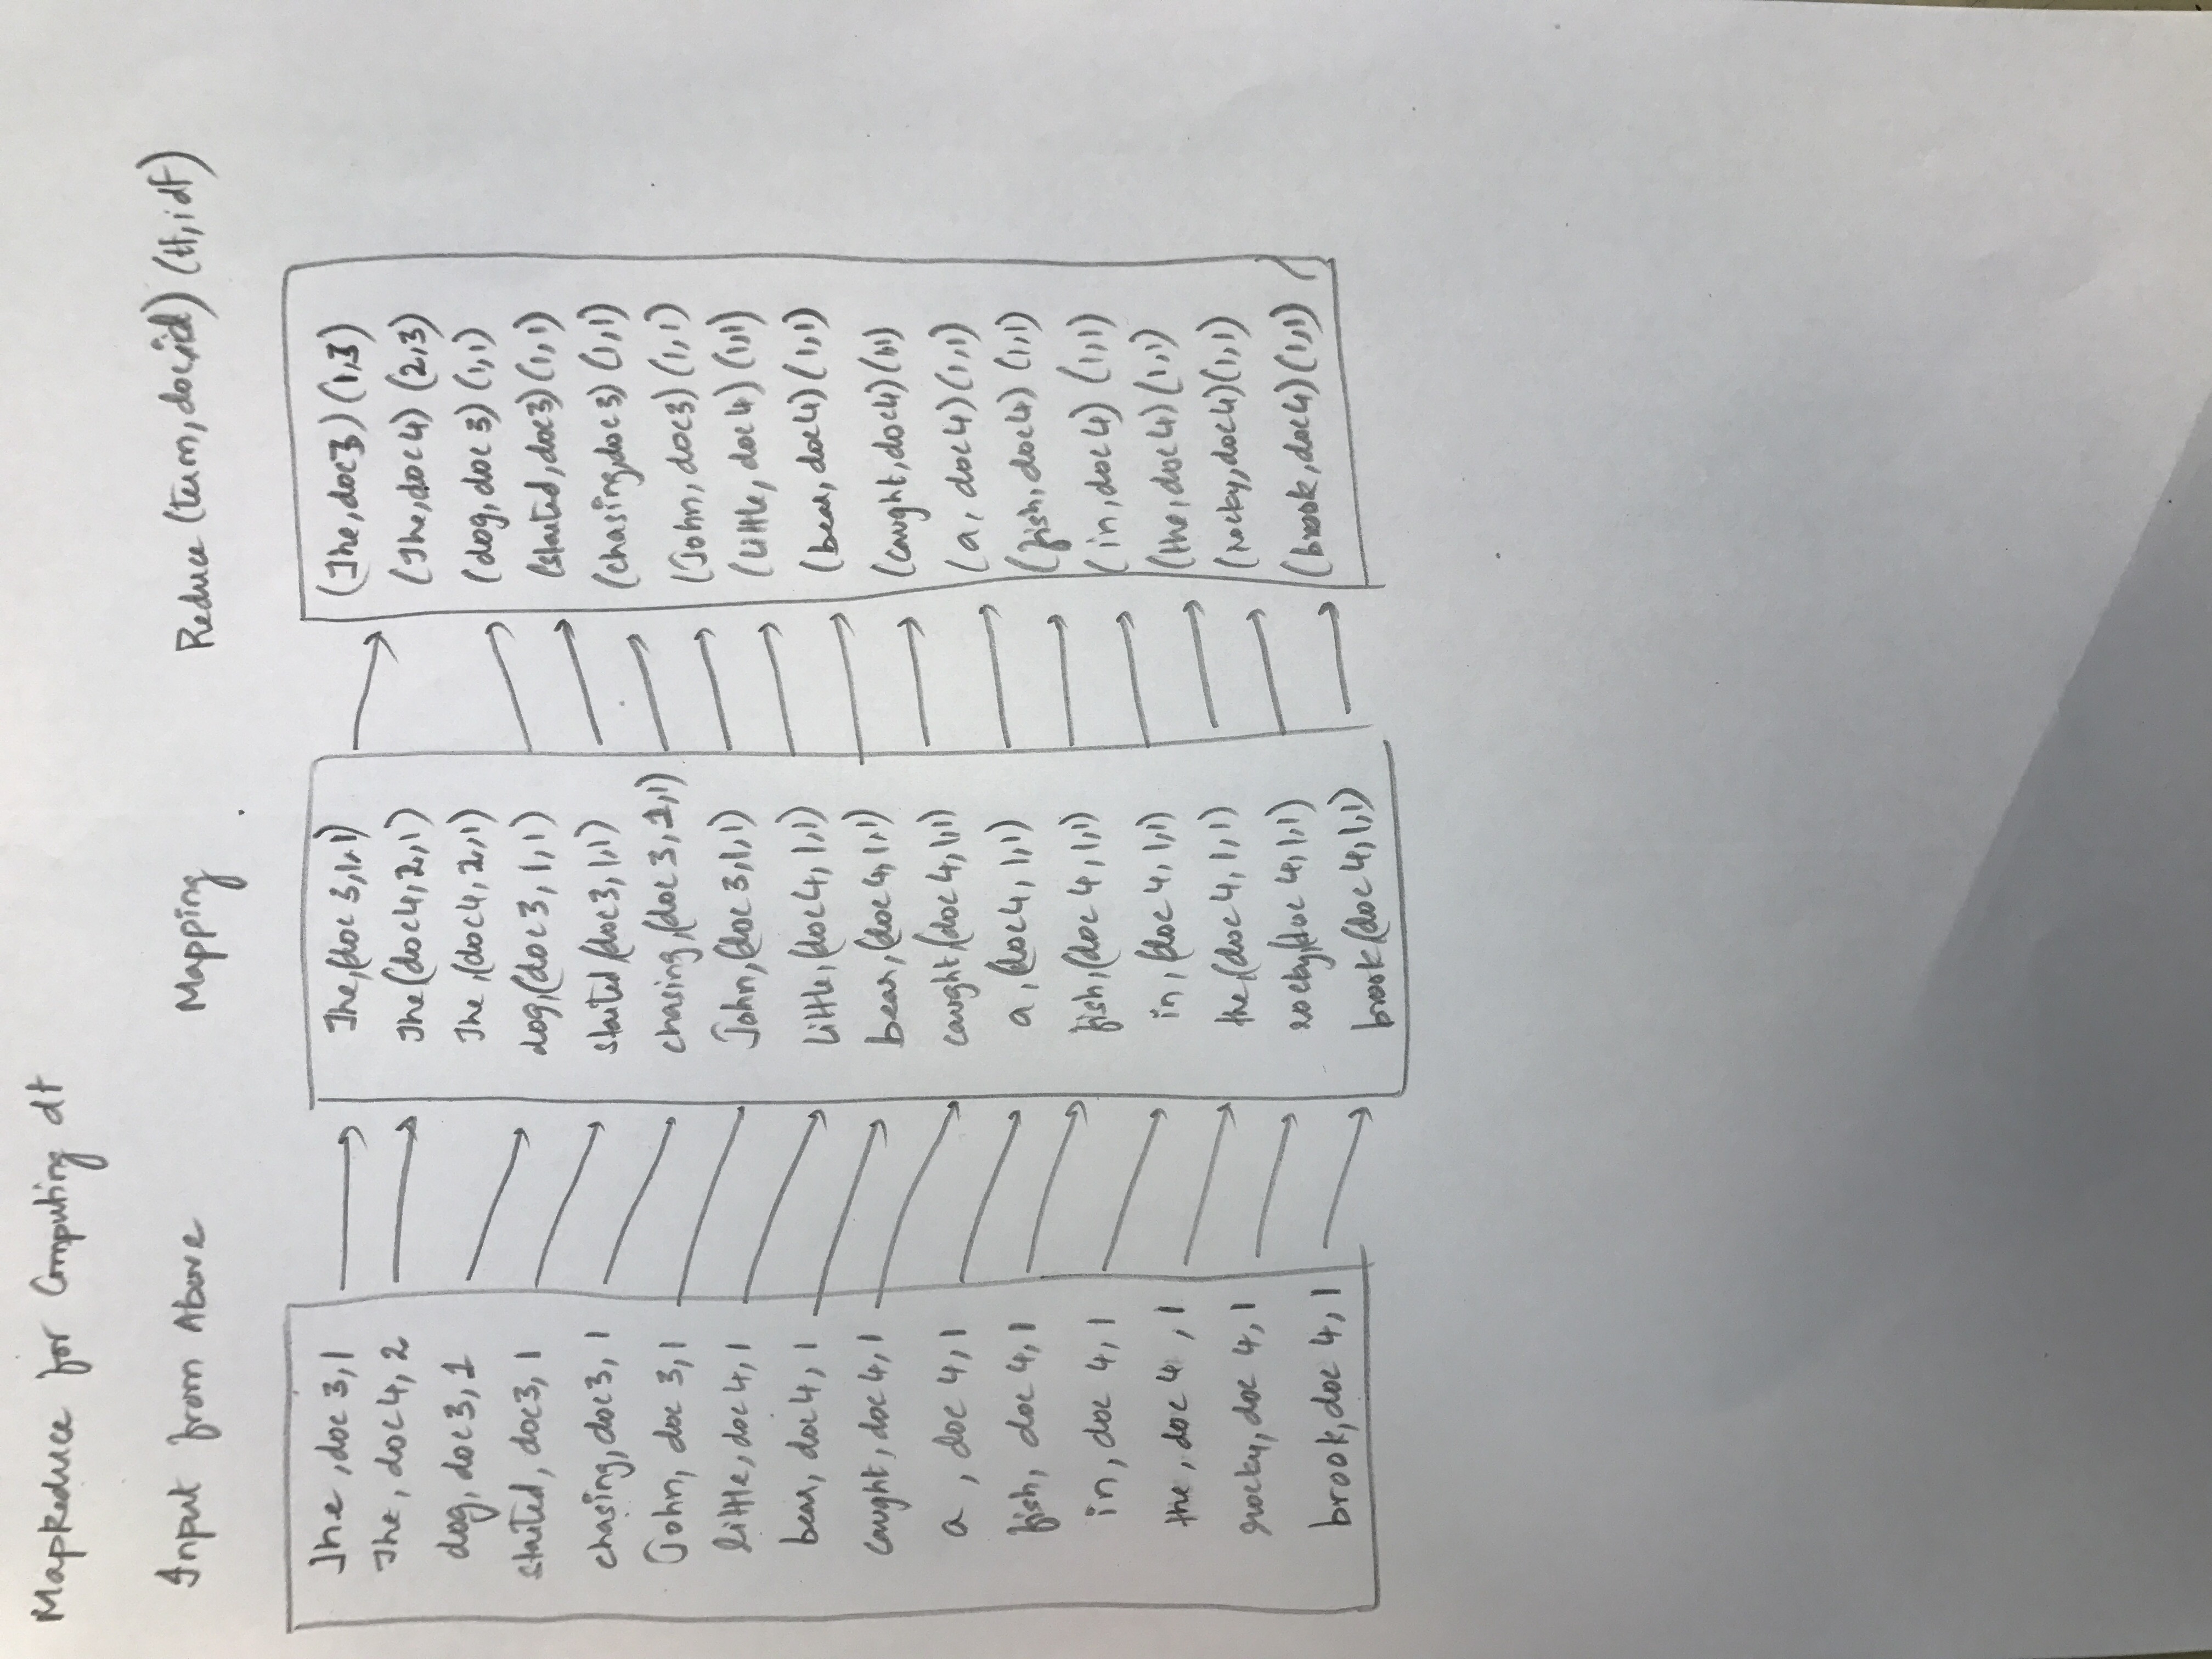 MapReduce for Computing df
Input from Above
Mapping
Reduce (term, doc,id) (tf, idf)
The, doc 3, 1
The, doc 4, 2
dog, doc 3, 1
started, doc3, 1
chasing, doc3, 1
John, doc 3, 1
little, doc 4, 1
bear, doc 4, 1
caught, doc 4, 1
a, doc 4, 1
fish, doc 4, 1
in, doc 4, 1
the, doc 4, 1
rocky, doc 4, 1
brook, doc 4, 1
The, (doc 3, 1, 1)
The (doc4, 2, 1)
The, (doc4, 2, 1)
dog, (doc 3, 1, 1)
started, (doc3, 1, 1)
chasing, (doc 3, 1, 1)
John, (doc 3, 1, 1)
little, (doc4, 1, 1)
bear, (doc 4, 1, 1)
caught, (doc 4, 1, 1)
a, (doc4, 1, 1)
fish, (doc 4, 1, 1)
in, (doc 4, 1, 1)
the, (doc 4, 1, 1)
rocky, (doc 4, 1, 1)
brook, (doc 4, 1, 1)
(The, doc3) (1, 3)
(The, doc 4) (2, 3)
(dog, doc 3) (1, 1)
(started, doc3) (1, 1)
(chasing, doc3) (1, 1)
(John, doc3) (1, 1)
(little, doc 4) (1, 1)
(bear, doc4) (1, 1)
(caught, doc4) (1, 1)
(a, doc4) (1, 1)
(fish, doc4) (1, 1)
(in, doc 4) (1, 1)
(the, doc4) (1, 1)
(rocky, doc4) (1, 1)
(brook, doc4) (1, 1)